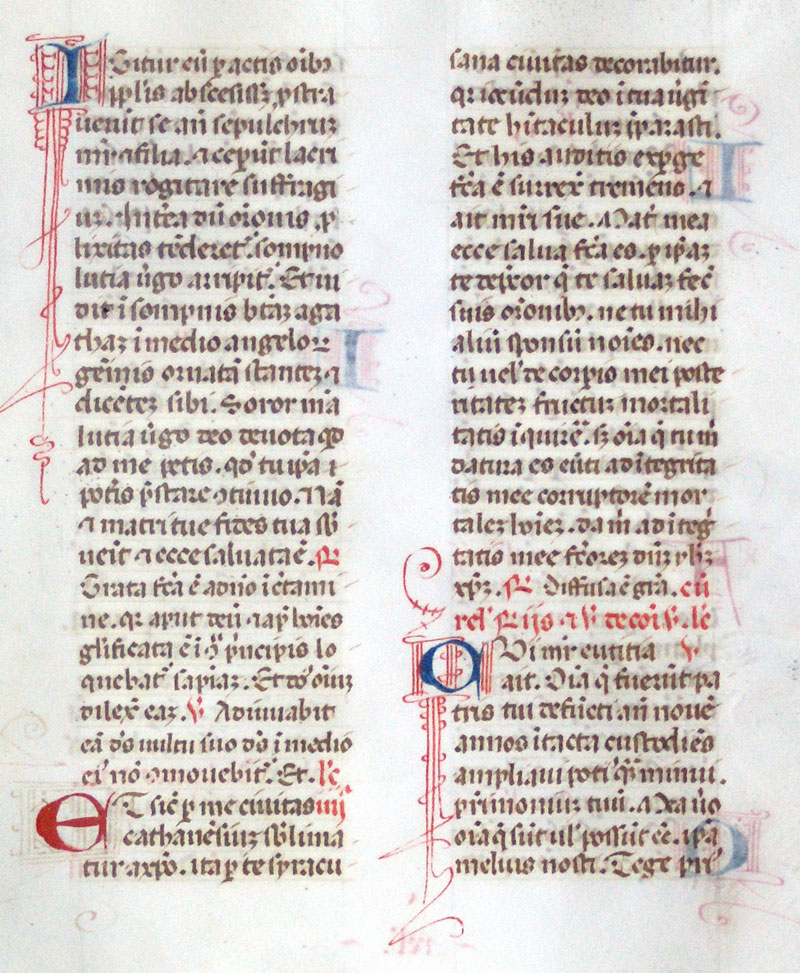 Igitur cū ꝑactis oībꝫ
pp̄lis abscesisꝫ ꝓstra
uerūt se añ sepulchrum
mr̄ ⁊ filia. ⁊ ceperūt lacri
mis rogitare suffragi
um. Int̄ea dū orōnis ꝓ
lixitas tēderetᷣ. sompno
lucia ūgo arripitᷣ. Et ui
dit ī sompnis btāꝫ aga
thaꝫ ī medio angeloꝝ
gēmis ornatā stanteꝫ ⁊
dicēteꝫ sibi. Soror mā
lucia ūgo deo deuota qd̄
ad me petis. qd̄ tu ip̄a
potis p̄stare ꝯtinuo. Nā
⁊ matri tue fides tua sb̄
ueīt ⁊ ecce saluata ē. R
Grata fc̄a ē a dn̄o ī c̄tami
ne. qꝛ aput deū ⁊ ap̄ hoīes
glīficata ē ī ꝯspectu p̄ncipis lo
quebatᷣ sapiaꝫ. Et dn̄s oīuꝫ
dilex̄ eaꝫ. V Adiuuabit
eā ds̄ uultu suo ds̄ ī medio
ei9 nō ꝯmouebitᷣ. Et. lc̄
Et sic̄ ꝑ me ciuitas iij
cathanēsiuꝫ sb̄lima
tur a xp̄o. ita ꝑ te syracu
sana ciuitas decorabitur.
qꝛ iocūduꝫ deo ī tua ūgī
tate hītaculuꝫ p̄parasti.
Et his auditis exꝑge
fc̄a ē surrex̄ tremēno. ⁊
ait mr̄i sue. Mat̄ mea
ecce salua fc̄a es. ꝑ ip̄aꝫ
te dep̄cor q̄ te saluaꝫ fec̄
suis orōnibꝫ. ne tu mihi
aliuꝫ sponsū noīes. nec
tu uel de corpis mei poste
ritateꝫ fructuꝫ mortali
tatis īquirē. sꝫ oīa q̄ tu m̄
datura es eūti ad ītegrita
tis mee corruptorē mor
taleꝫ hoīeꝫ. da m̄ ad ītegͥ
tatis mee fc̄oreꝫ dūꝫ yhꝫ
xp̄ꝫ. R Diffusa ē grā. cū
rel' R ijs ⁊ V de coī V. lc̄
Qui mr̄ eutitia V
ait. Oīa q̄ fuerūt pa
tris tui defūcti añ nouē
annos ītacta custodiēs
ampliaui poti9 qᷓ minui.
p̄rimoniuꝫ tuū. Nā ūo
oīa q̄ sūt ul' possūt ēē. ip̄a
melius nosti. Tege pri9